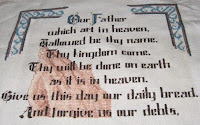 Our Father
which art in heaven,
Hallowed be thy name.
Thy kingdom come.
Thy will be done on earth
as it is in heaven.
Give us this day our daily bread.
And forgive us our debts,